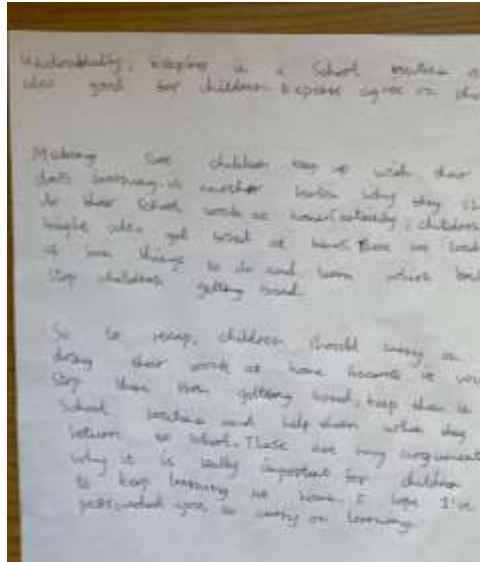 Undoubtedly, keeping in a School routine
also good for children. Experts agree on
Making sure children keep up with their
learning is another why they
do their School work at home. , children
might also get bored at home. There are
of things to do and learn which
stop children getting bored.
So to recap, children should carry on
doing their work at home because it
stop them from getting bored, keep them in
School routine and help them when they
return to School. These are my arguments
why it is really important for children
to keep learning at home. I hope I've
persuaded you to carry on learning.